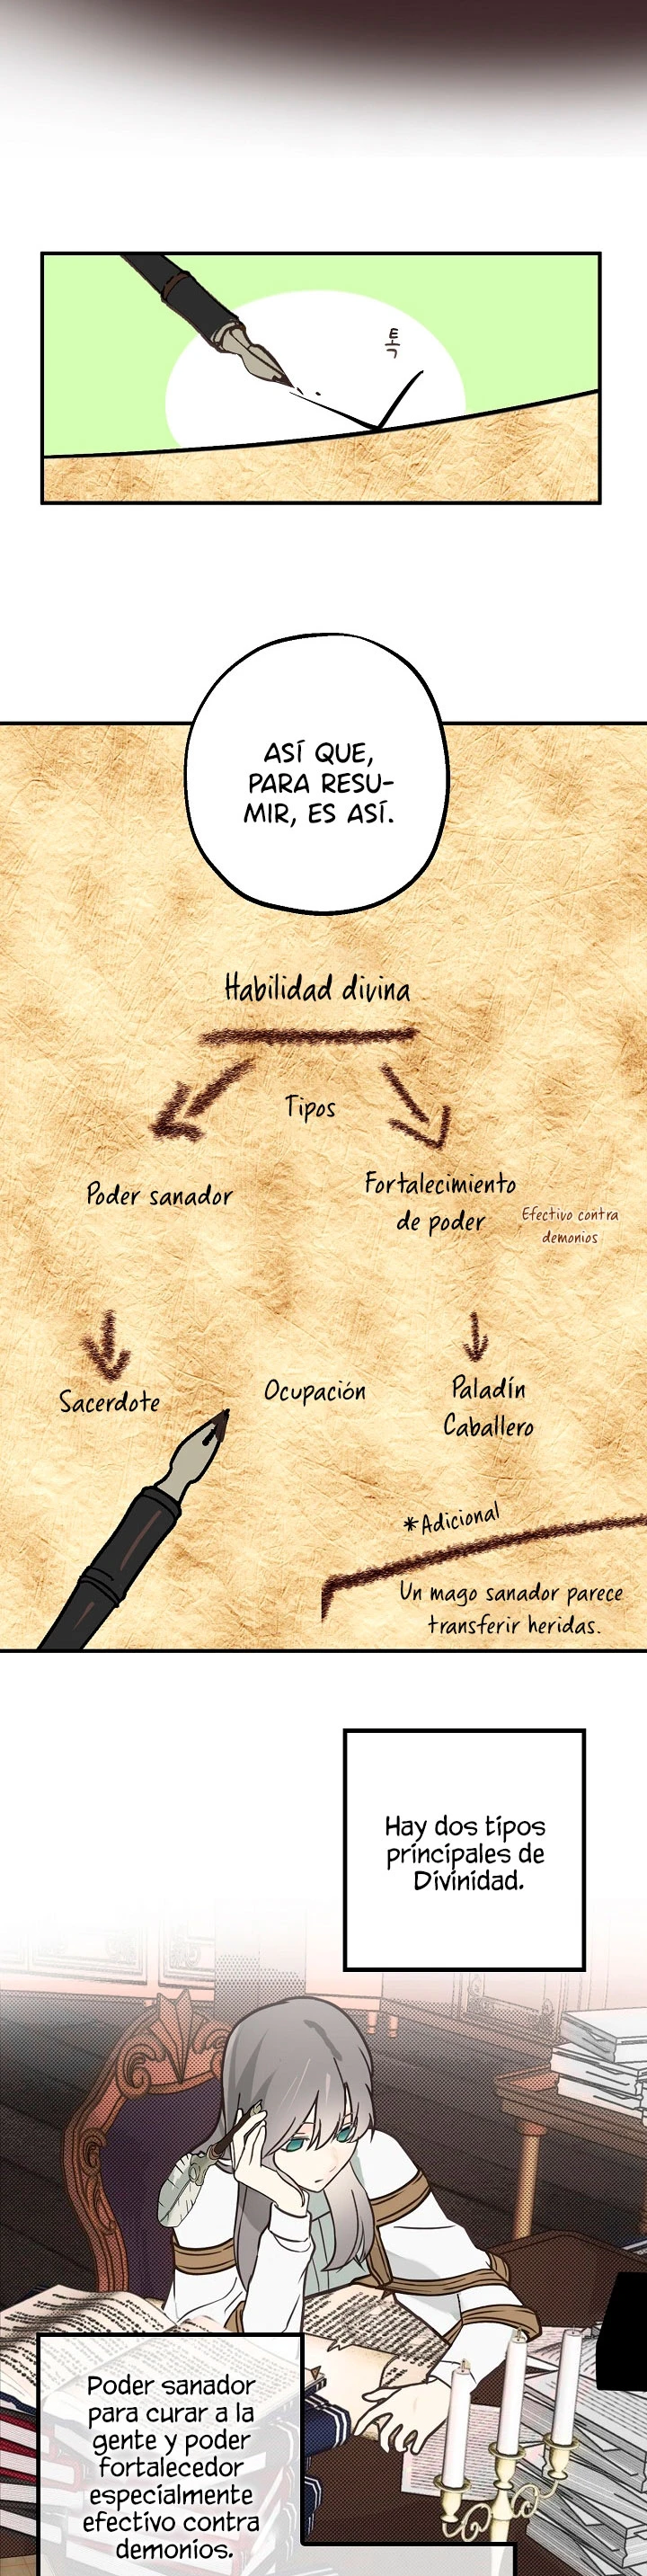 톡
ASÍ QUE,
PARA RESU-
MIR, ES ASÍ.
Habilidad divina
Tipos
Poder sanador
Fortalecimiento
de poder
Efectivo contra
demonios
Sacerdote
Ocupación
Paladín
Caballero
*Adicional
Un mago sanador parece
transferir heridas.
Hay dos tipos
principales de
Divinidad.
Poder sanador
para curar a la
gente y poder
fortalecedor
especialmente
efectivo contra
demonios.